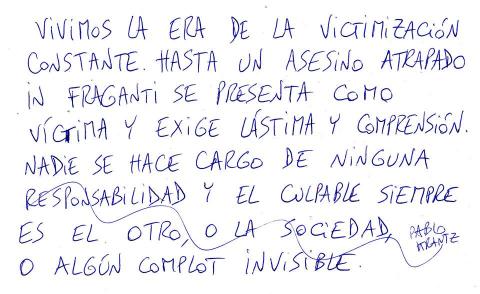 VIVIMOS LA ERA DE LA VICTIMIZACIÓN
CONSTANTE. HASTA UN ASESINO ATRAPADO
IN FRAGANTI SE PRESENTA COMO
VÍCTIMA Y EXIGE LÁSTIMA Y COMPRENSIÓN.
NADIE SE HACE CARGO DE NINGUNA
RESPONSABILIDAD Y EL CULPABLE SIEMPRE
ES EL OTRO, O LA SOCIEDAD,
O ALGÚN COMPLOT INVISIBLE.
PABLO
KRANTZ